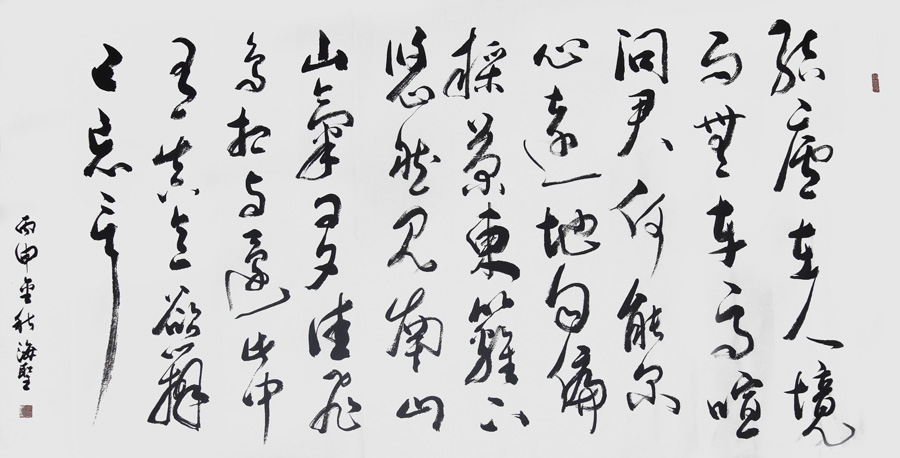 結廬在人境
而無車馬喧
問君何能尔
心遠地自偏
採菊東籬下
悠然見南山
山氣日夕佳飛
鳥相與還此中
有真意欲辨
已忘言
丙申金秋海聖